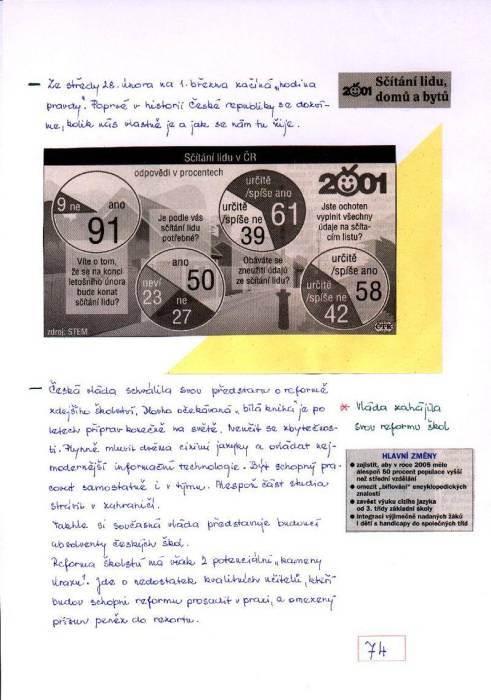 – Ze středy 28. února na 1. března začíná „hodina
pravdy“. Poprvé v historii České republiky se dozví-
me, kolik nás vlastně je a jak se nám tu žije.
2001 Sčítání lidu,
domů a bytů
Sčítání lidu v ČR
odpovědi v procentech
2001
9 ne
ano
91
Víte o tom,
že se na konci
letošního února
bude konat
sčítání lidu?
Je podle vás
sčítání lidu
potřebné?
ano
50
neví
23
ne
27
určitě
/spíše ano
61
určitě
/spíše ne
39
Obáváte se
zneužití údajů
ze sčítání lidu?
Jste ochoten
vyplnit všechny
údaje na sčíta-
cím listu?
určitě
/spíše ano
58
určitě
/spíše ne
42
zdroj: STEM
ČTK
– Česká vláda schválila svou představu o reformě
zdejšího školství. Dlouho očekávaná „bílá kniha“ je po
letech příprav konečně na světě. Neučit se zbytečnos-
ti. Plynně mluvit dvěma cizími jazyky a ovládat nej-
modernější informační technologie. Být schopný pra-
covat samostatně i v týmu. Alespoň část studia
strávit v zahraničí.
Takhle si současná vláda představuje budoucí
absolventy českých škol.
Reforma školství má však 2 potenciální „kameny
úrazu“. Jde o nedostatek kvalitních učitelů, kteří
budou schopni reformu prosadit v praxi, a omezený
přísun peněz do resortu.
* Vláda zahájila
svou reformu škol
HLAVNÍ ZMĚNY
● zajistit, aby v roce 2005 mělo
alespoň 50 procent populace vyšší
než střední vzdělání
● omezit „biflování“ encyklopedických
znalostí
● zavést výuku cizího jazyka
od 3. třídy základní školy
● integraci výjimečně nadaných žáků
i dětí s handicapy do společných tříd
74